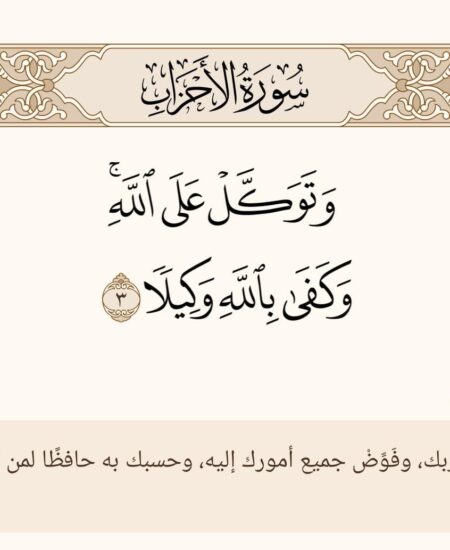 سُورَةُ الأَحْزَابِ
وَتَوَكَّلْ عَلَى ٱللَّهِۚ
وَكَفَىٰ بِٱللَّهِ وَكِيلًا ٣
وفَوِّضْ جميع أمورك إليه، وحسبك به حافظًا لمن